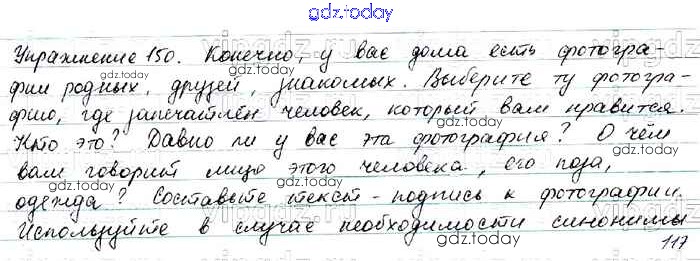 gdz.today
Упражнение 150. Конечно, у вас дома есть фотогра-
фии родных, друзей, знакомых. Выберите ту фотогра-
фию, где запечатлён человек, который вам нравится.
Кто это? Давно ли у вас эта фотография? О чём
вам говорит лицо этого человека, его поза,
одежда? Составьте текст-подпись к фотографии.
Используйте в случае необходимости синонимы
117